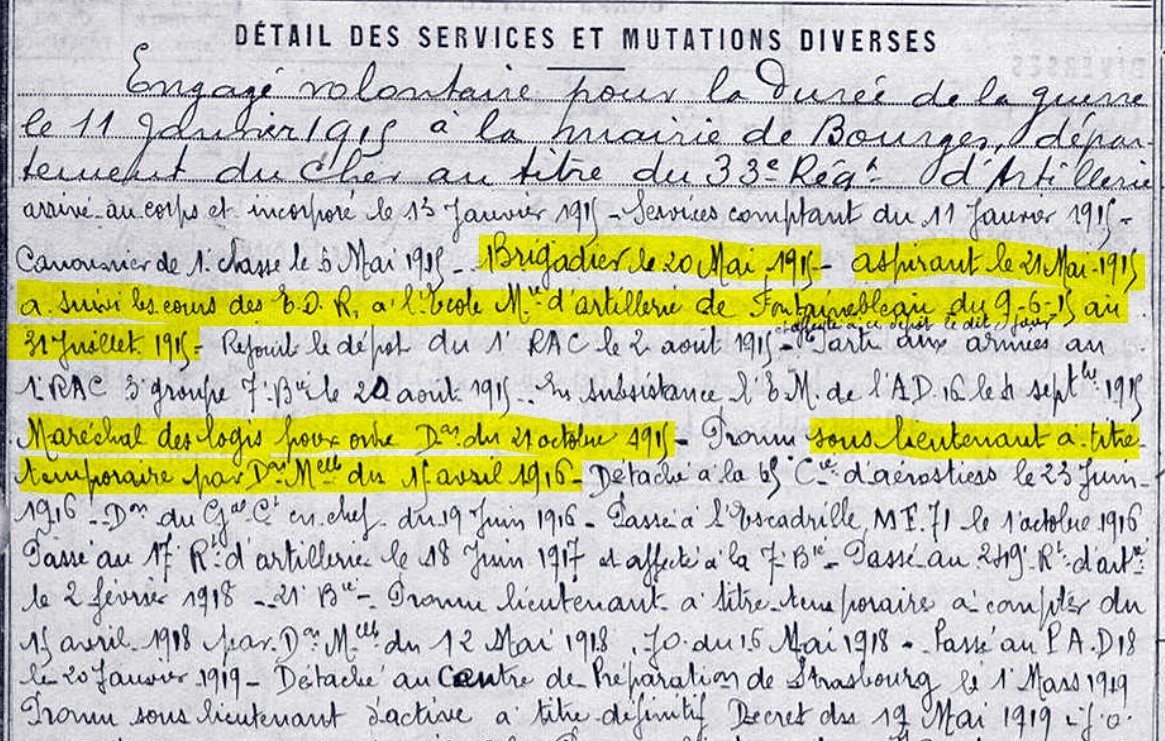 DÉTAIL DES SERVICES ET MUTATIONS DIVERSES
Engagé volontaire pour la Durée de la guerre
le 11 Janvier 1915 à la mairie de Bourges, dépar-
tement du Cher au titre du 33e Régt d'Artillerie
arrivé au corps et incorporé le 13 Janvier 1915 - Services comptant du 11 Janvier 1915 -
Canonnier de 1. classe le 6 Mai 1915 - Brigadier le 20 Mai 1915 - aspirant le 21 Mai 1915
a suivi les cours des E.O.R. à l'Ecole Mre d'artillerie de Fontainebleau du 9-6-15 au
31 Juillet 1915 - Rejoint le dépot du 1' RAC le 2 aout 1915 -
affecté à ce dépot le dit jour
Parti aux armées au
1' RAC 3' groupe 7' Bie le 20 aout 1915. En subsistance l'E.M. de l'A.D. 16 le sept bre 1915
Maréchal des logis pour ordre Don du 21 octobre 1915 - Promu sous lieutenant à titre
temporaire par Don Melle du 15 avril 1916 - Détaché à la 65 Cie d'aérostiers le 23 Juin
1916 - Don du Gal Ct en chef du 19 Juin 1916 - Passé à l'Escadrille M.F. 71 le 1' octobre 1916
Passé au 17' Rt d'artillerie le 18 Juin 1917 et affecté à la 7' Bie - Passé au 249' Rt d'artie
le 2 février 1918 - 21' Bie - Promu lieutenant à titre temporaire à compter du
15 avril 1918 par Don Melle du 12 Mai 1918. J.O. du 16 Mai 1918 - Passé au P.A.D 18
le 20 Janvier 1919 - Détaché au Centre de Préparation de Strasbourg le 1' Mars 1919
Promu sous lieutenant d'active à titre définitif Décret du 19 Mai 1919 J.O.